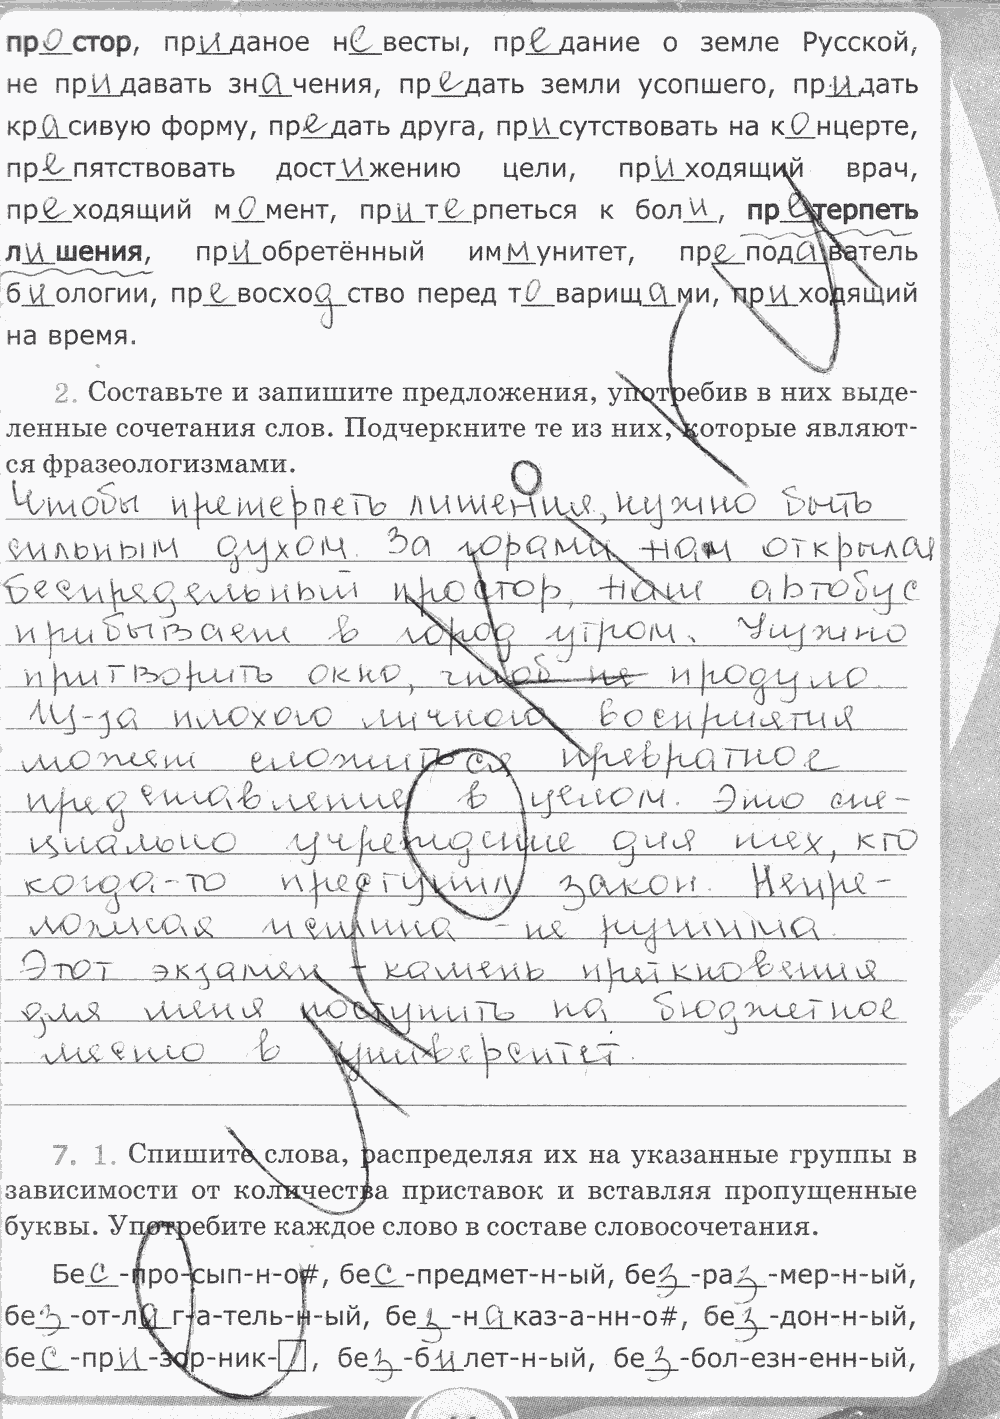 простор, приданое невесты, предание о земле Русской,
не придавать значения, предать земли усопшего, придать
красивую форму, предать друга, присутствовать на концерте,
препятствовать достижению цели, приходящий врач,
преходящий момент, притерпеться к боли, претерпеть
лишения, приобретённый иммунитет, преподаватель
биологии, превосходство перед товарищами, приходящий
на время.
2. Составьте и запишите предложения, употребив в них выде-
ленные сочетания слов. Подчеркните те из них, которые являют-
ся фразеологизмами.
Чтобы претерпеть лишения, нужно быть
сильным духом. За горами нам открылся
беспредельный простор, наш автобус
прибывает в город утром. Нужно
притворить окно, чтоб не продуло.
Из-за плохого личного восприятия
может сложиться превратное
представление в целом. Это спе-
циально учреждение для тех, кто
когда-то преступил закон. Непре-
ложная истина - не рушима.
Этот экзамен - камень преткновения
для меня поступить на бюджетное
место в университет.
7. 1. Спишите слова, распределяя их на указанные группы в
зависимости от количества приставок и вставляя пропущенные
буквы. Употребите каждое слово в составе словосочетания.
Бес-про-сып-н-о#, бес-предмет-н-ый, без-раз-мер-н-ый,
без-от-лаг-а-тель-н-ый, без-наказ-а-нн-о#, без-дон-н-ый,
бес-при-зор-ник-, без-билет-н-ый, без-бол-езн-енн-ый,